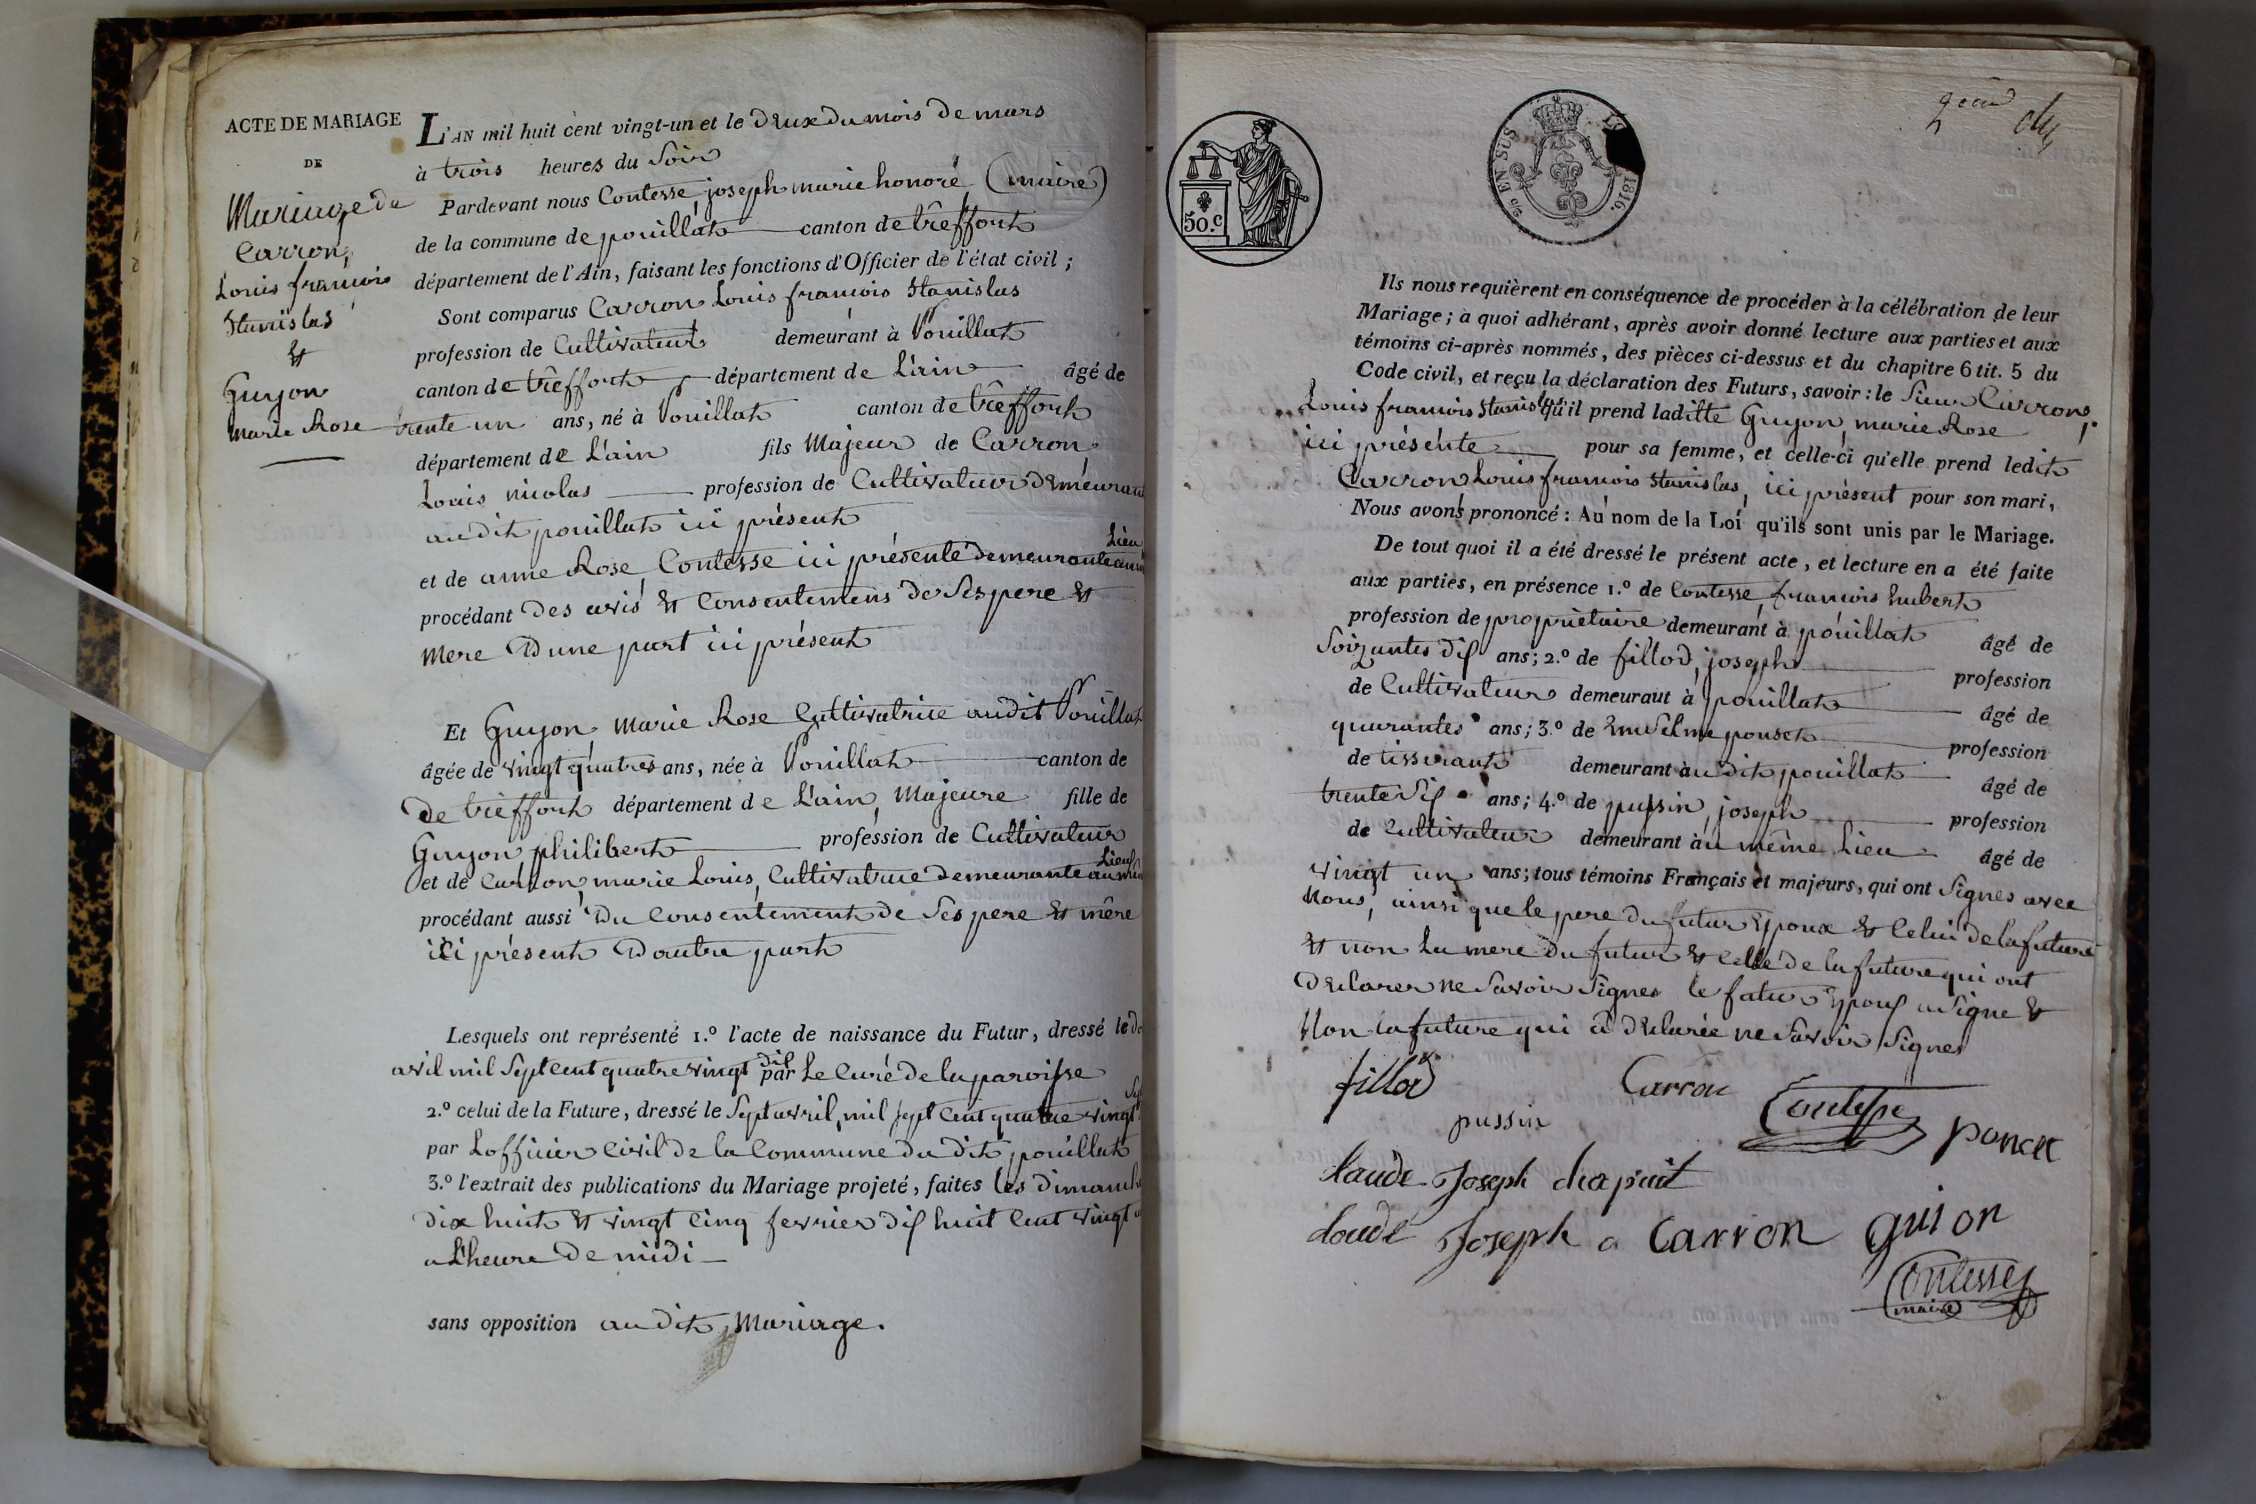 ACTE DE MARIAGE
DE
Mariage de
Carron,
Louis francois
Stanislas
&
Guyon
marie Rose
L'AN mil huit cent vingt-un et le deux du mois de mars
à trois heures du soir
Pardevant nous Contesse, joseph marie honoré (maire)
de la commune de pouillat canton de trêffort
département de l'Ain, faisant les fonctions d'Officier de l'état civil ;
Sont comparus Carron Louis francois Stanislas
profession de Cultivateur demeurant à Pouillat
canton de trêffort département de L'ain âgé de
trente un ans, né à Pouillat canton de trêffort
département de L'ain fils Majeur de Carron,
Louis nicolas profession de Cultivateur demeurant
audit pouillat ici présent
et de anne Rose, Contesse ici présente demeurante au Lieu
procédant des avis & consentemens de Ses pere &
mere d'une part ici présent
Et Guyon, marie Rose Cultivatrice audit Pouillat
âgée de vingt quatres ans, née à Pouillat canton de
de trèffort département de L'ain, Majeure fille de
Guyon, philibert profession de Cultivateur
et de Carron, marie Louis, Cultivatrice demeurante au Lieu
procédant aussi du consentement de Ses pere & mêre
ici présent d'autre part
Lesquels ont représenté 1.º l'acte de naissance du Futur, dressé le
avil mil Sept cent quatre vingt dix par Le Curé de la paroisse
2.º celui de la Future, dressé le Sept avril, mil sept cent quatre vingt
par Lofficier civil de la Commune du dit pouillat
3.º l'extrait des publications du Mariage projeté, faites les dimanch
dix huit & vingt cinq fevrier dix huit cent vingt
a L'heure de midi
sans opposition au dit Mariage.
50.c
EN SUS
1816.
Ils nous requièrent en conséquence de procéder à la célébration de leur
Mariage ; à quoi adhérant, après avoir donné lecture aux parties et aux
témoins ci-après nommés, des pièces ci-dessus et du chapitre 6 tit. 5 du
Code civil, et reçu la déclaration des Futurs, savoir : le Sieur Carron,
Louis francois Stanislas qu'il prend laditte Guyon, marie Rose
ici présente pour sa femme, et celle-ci qu'elle prend ledit
Carron Louis francois Stanislas, ici présent pour son mari,
Nous avons prononcé : Au nom de la Loi qu'ils sont unis par le Mariage.
De tout quoi il a été dressé le présent acte, et lecture en a été faite
aux parties, en présence 1.º de Contesse, francois hubert
profession de propriètaire demeurant à pouillat âgé de
Soixantes dix ans ; 2.º de fillod, joseph profession
de Cultivateur demeuraut à pouillat âgé de
quarantes ans ; 3.º de anselme ponset profession
de tisserant demeurant audit pouillat âgé de
trente six ans ; 4.º de pussin, joseph profession
de Cultivateur demeurant au même Lieu âgé de
vingt un ans ; tous témoins Français et majeurs, qui ont Signes avec
Nous, ainsi que le pere du futur Epoux & Celui de la future
& non la mere du futur & celle de la future qui ont
declarer ne Savoir Signer le futur Epoux a Signe &
Non la future qui à declarée ne Savoir Signer
fillod Carron Contesse
pussin poncet
Claude Joseph chapuit
Claude Joseph a Carron guion
Contesse
maire